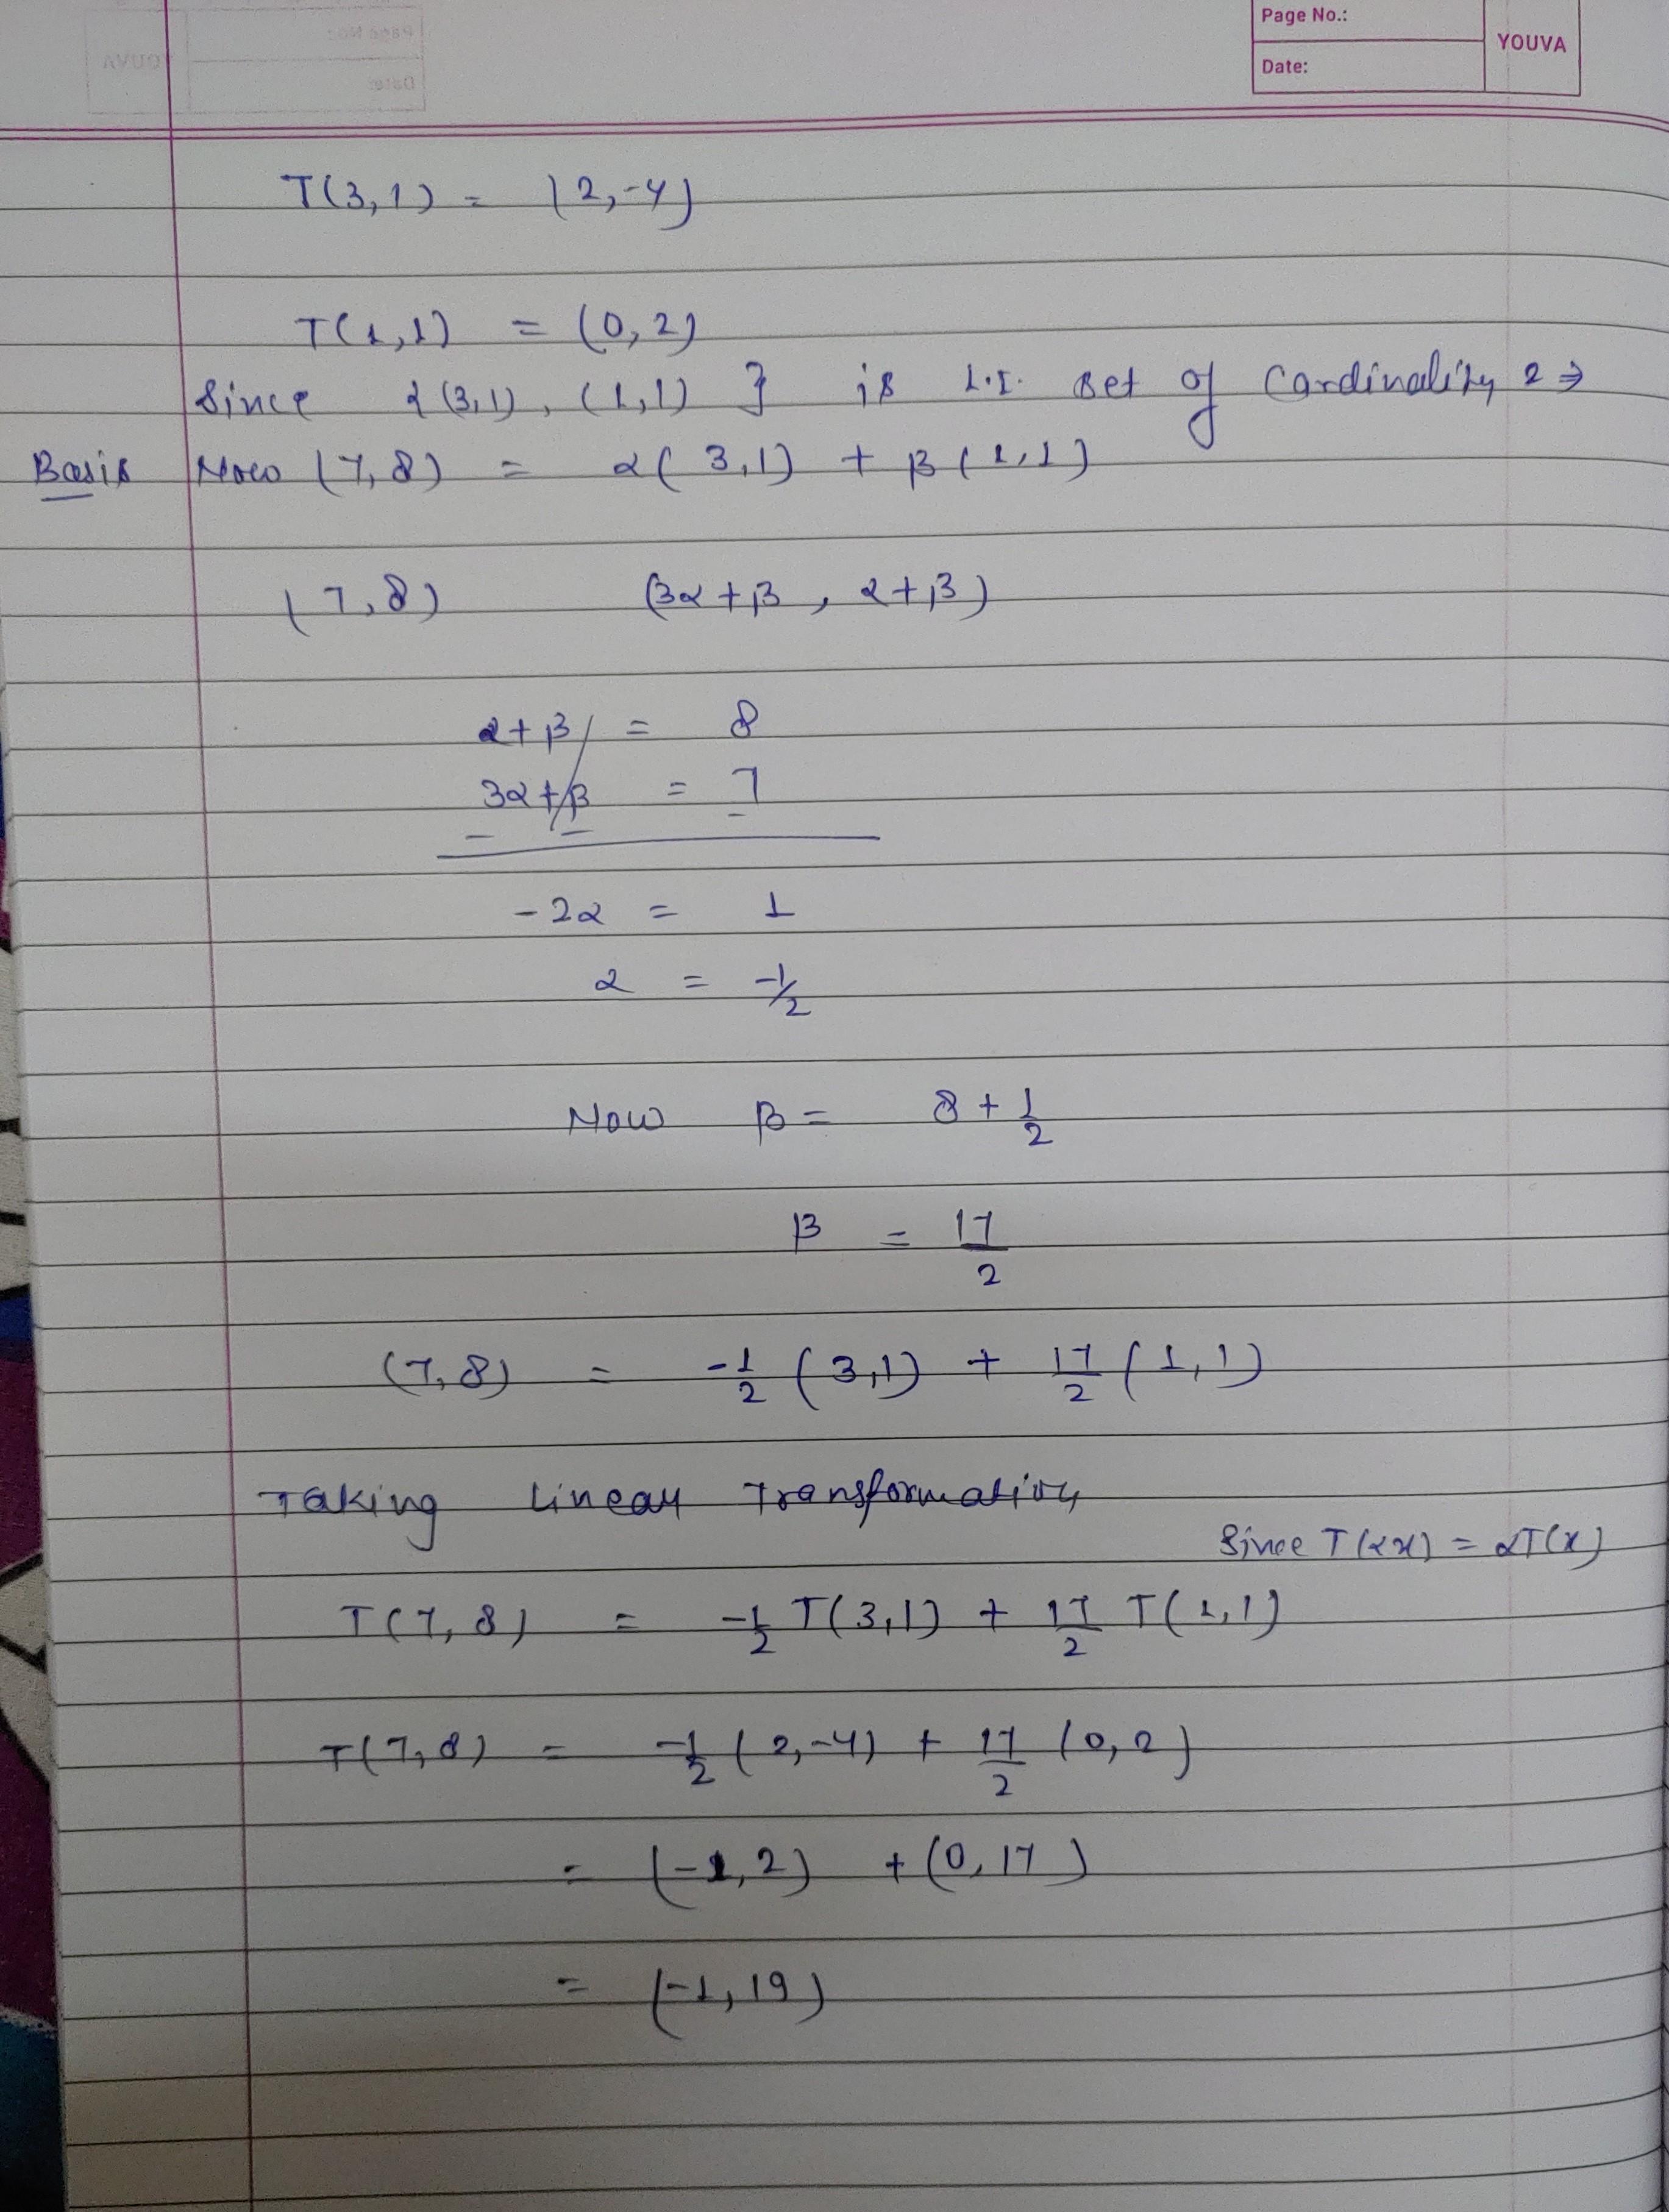 Page No.:
YOUVA
Date:
T(3,1) = (2,-4)
T(1,1) = (0,2)
Since {(3,1), (1,1)} is L.I. set of Cardinality 2 ⇒
Basis Now (7,8) = α(3,1) + β(1,1)
(7,8) (3α+β, α+β)
α+β = 8
3α+β = 7
- - -
-2α = 1
α = -1/2
Now β = 8 + 1/2
β = 17/2
(7,8) = -1/2 (3,1) + 17/2 (1,1)
Taking Linear Transformation
Since T(αx) = αT(x)
T(7,8) = -1/2 T(3,1) + 17/2 T(1,1)
T(7,8) = -1/2 (2,-4) + 17/2 (0,2)
= (-1,2) + (0,17)
= (-1,19)